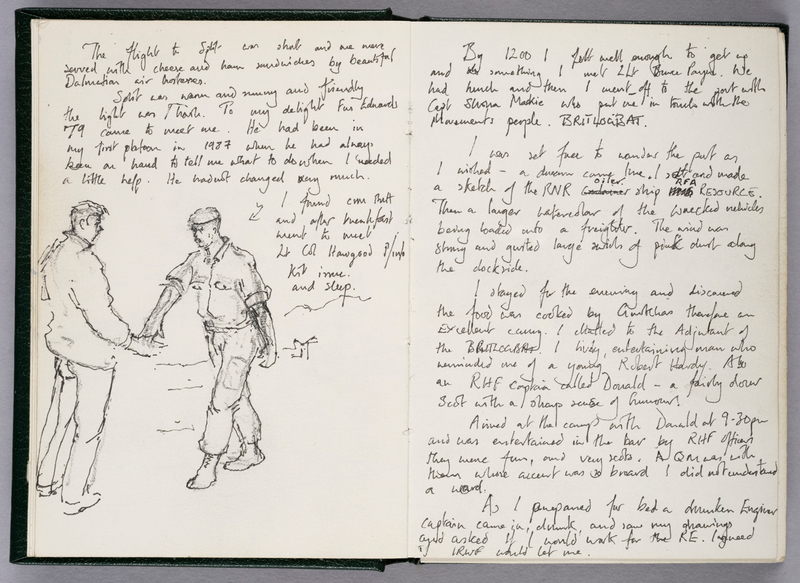 The flight to Split was short and we were
served with cheese and ham sandwiches by beautiful
Dalmatian air hostesses.
Split was warm and sunny and friendly
the light was / harsh. To my delight Fus Edwards
79 came to meet me. He had been in
my first platoon in 1987 when he had always
been on hand to tell me what to do when I needed
a little help. He hadn't changed very much.
I found
and after breakfast
went to meet
Lt Col Hawgood P/info
Kit issue.
and sleep.
By 1200 I felt well enough to get up
and do something I met 2Lt Bruce Payne. We
had lunch and then I went off to the port with
Capt Shona Mackie who put me in touch with the
Movements people. BRITLOGBAT.
I was set free to wander the port as
I wished - a dream come true. I sat and made
a sketch of the RNR oiler ship RFA RESOURCE.
Then a larger watercolour of the wrecked vehicles
being loaded onto a freighter. The wind was
strong and gusted large swirls of pink dust along
the dockside.
I stayed for the evening and discovered
the food was cooked by Gurkhas therefore an
Excellent curry. I chatted to the Adjutant of
the BRITLOGBAT. A lively, entertaining man who
reminded me of a young Robert Hardy. Also
an RHF Captain called Donald - a fairly dour
Scot with a sharp sense of humour!
Arrived at the camp with Donald at 9-30pm
and was entertained in the bar by RHF officers
they were fun, and very Scots. A QM was with
them whose accent was so broad I did not understand
a word.
As I prepared for bed a drunken Engineer
Captain came in, drunk, and saw my drawings
and asked if I would work for the RE. I agreed
if RWF would let me.